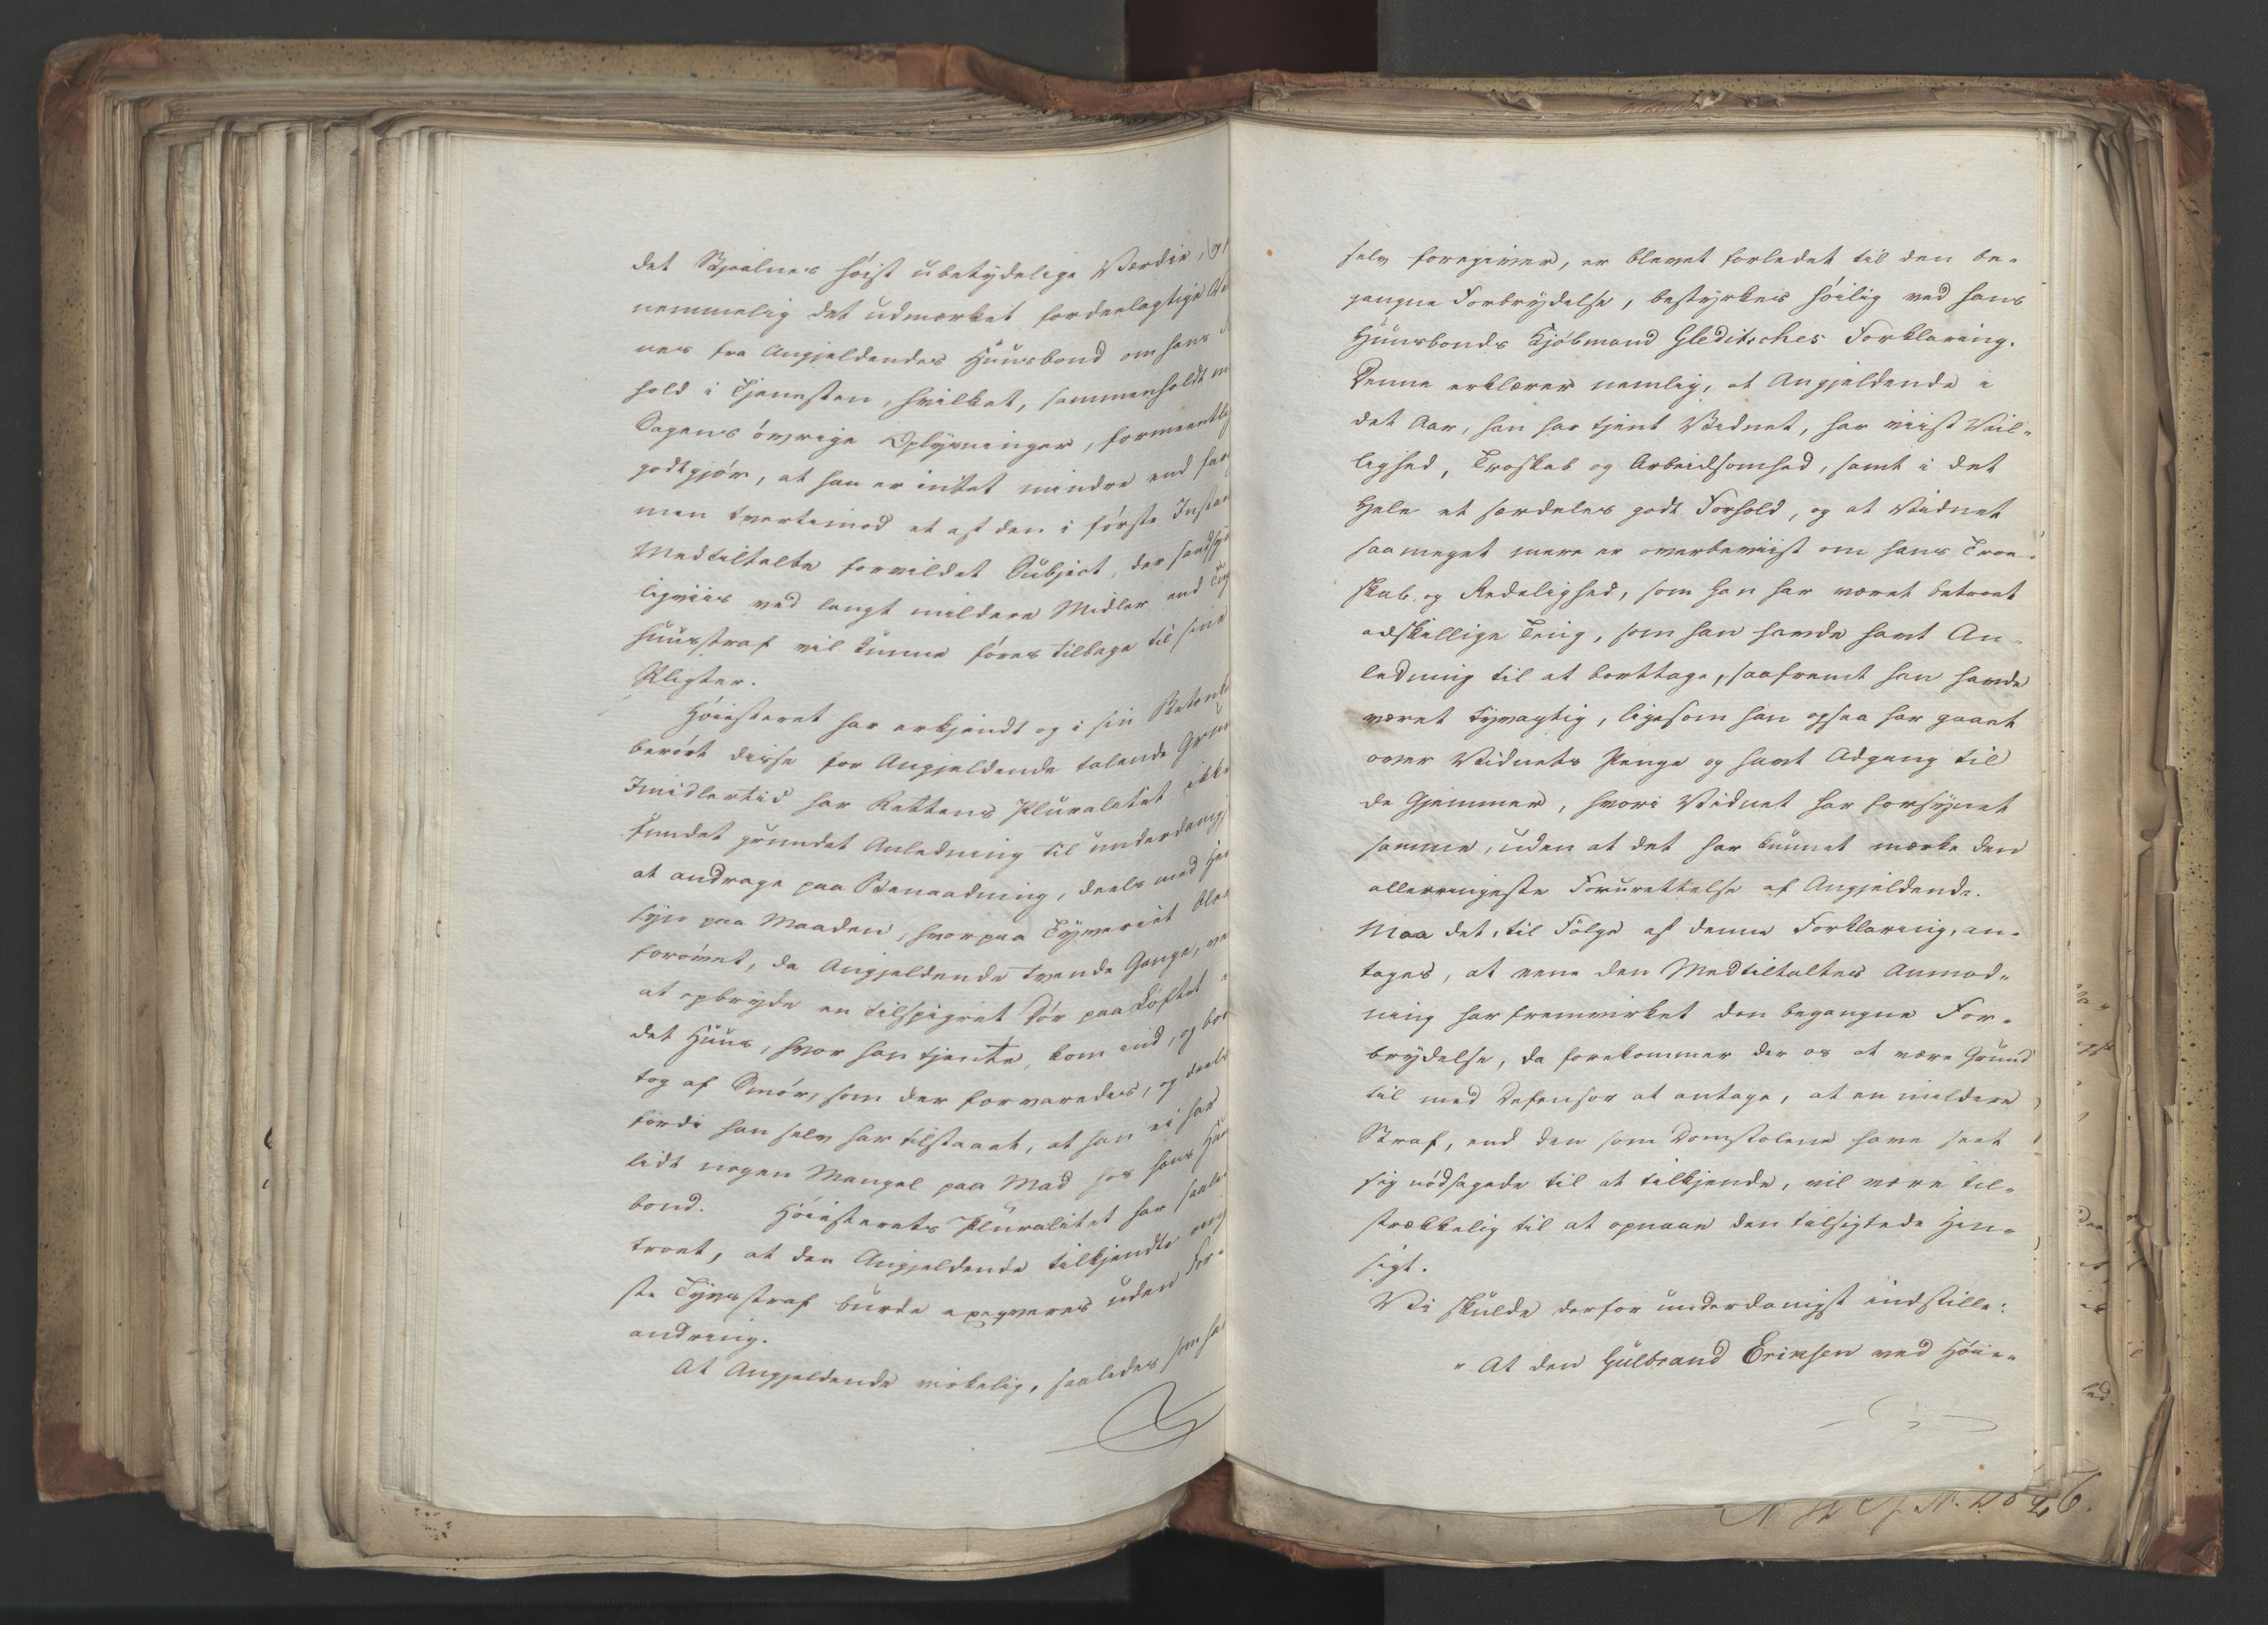 det Stjaalnes høist ubetydelige Værdie, og
nemmelig det udmærket fordeelagtige Vi
nes fra Angjeldendes Huusbond om hans
hold i Tjenesten, hvilket, sammenholdt m
Sagens øvrige Oplysninger, formeentlig
godtgjør, at han er intet mindre end far
men tvertimod et af den i første Instan
Medtiltalte forvildet Subject, der sandsyn
ligviis ved langt mildere Midler end Tug
huusstraf vil kunne føres tilbage til sine
Pligter.
Høiesteret har erkjendt og i sin Betænk
berørt disse for Angjeldende talende Gru
Imidlertid har Rettens Pluralitet ikke
fundet grundet Anledning til underdanig
at andrage paa Benaadning, deels med Hen
syn paa Maaden, hvorpaa Tyveriet blev
forøvet, da Angjeldende tvende Gange, ve
at opbryde en tilspigret Dør paa Loftet i
det Huus, hvor han tjente, kom ind, og bor
tog af Smør, som der forvaredes, og deels
fordi han selv har tilstaaet, at han ei har
lidt nogen Mangel paa Mad hos hans Huus
bond. Høiesterets Pluralitet har saale
troet, at den Angjeldende tilkjendte
ste Tyvsstraf burde exeqveres uden For-
andring.
At Angjeldende virkelig, saaledes som han
selv foregiver, er blevet forledet til den be-
gangne Forbrydelse, bestyrkes høilig ved hans
Huusbonds Kjøbmand Gleditsches Forklaring.
Denne erklærer nemlig, at Angjeldende i
det Aar, han har tjent Vidnet, har viist Vil-
lighed, Troskab og Arbeidsomhed, samt i det
Hele et særdeles godt Forhold, og at Vidnet
saa meget mere er overbeviist om hans Troe-
skab og Redelighed, som han har været betroet
adskillige Ting, som han havde havt An-
ledning til at borttage, saafremt han havde
været tyvagtig, ligesom han ogsaa har gaaet
over Vidnets Penge og havt Adgang til
de Gjemmer, hvori Vidnet har forsynet
samme, uden at det har kunnet mærke den
allerringeste Forurettelse af Angjeldende.
Maa det, til Følge af denne Forklaring, an-
tages, at ene den Medtiltaltes Anmod-
ning har fremvirket den begangne For-
brydelse, da forekommer der os at være Grund
til med Defensor at antage, at en mildere
Straf, end den som Domstolene have seet
sig nødsagede til at tilkjende, vil være til-
strækkelig til at opnaae den tilsigtede Hen-
sigt.
Vi skulde derfor underdanigst indstille:
" At den Gulbrand Eriksen ved Høie-